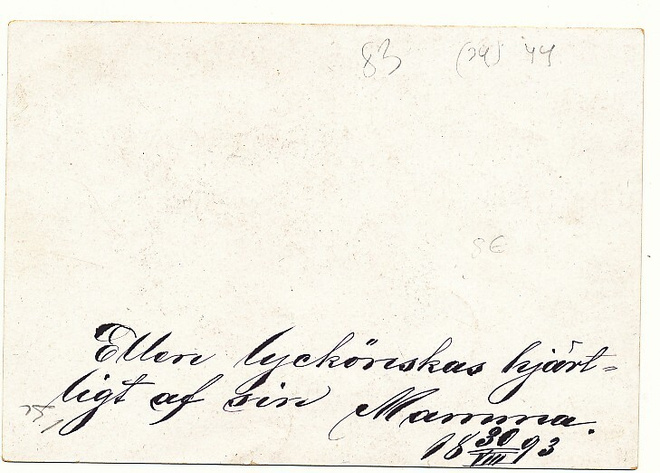 83 (24) 44
5€
Ellen lyckönskas hjärt=
ligt af sin Mamma.
18 30/VIII 93